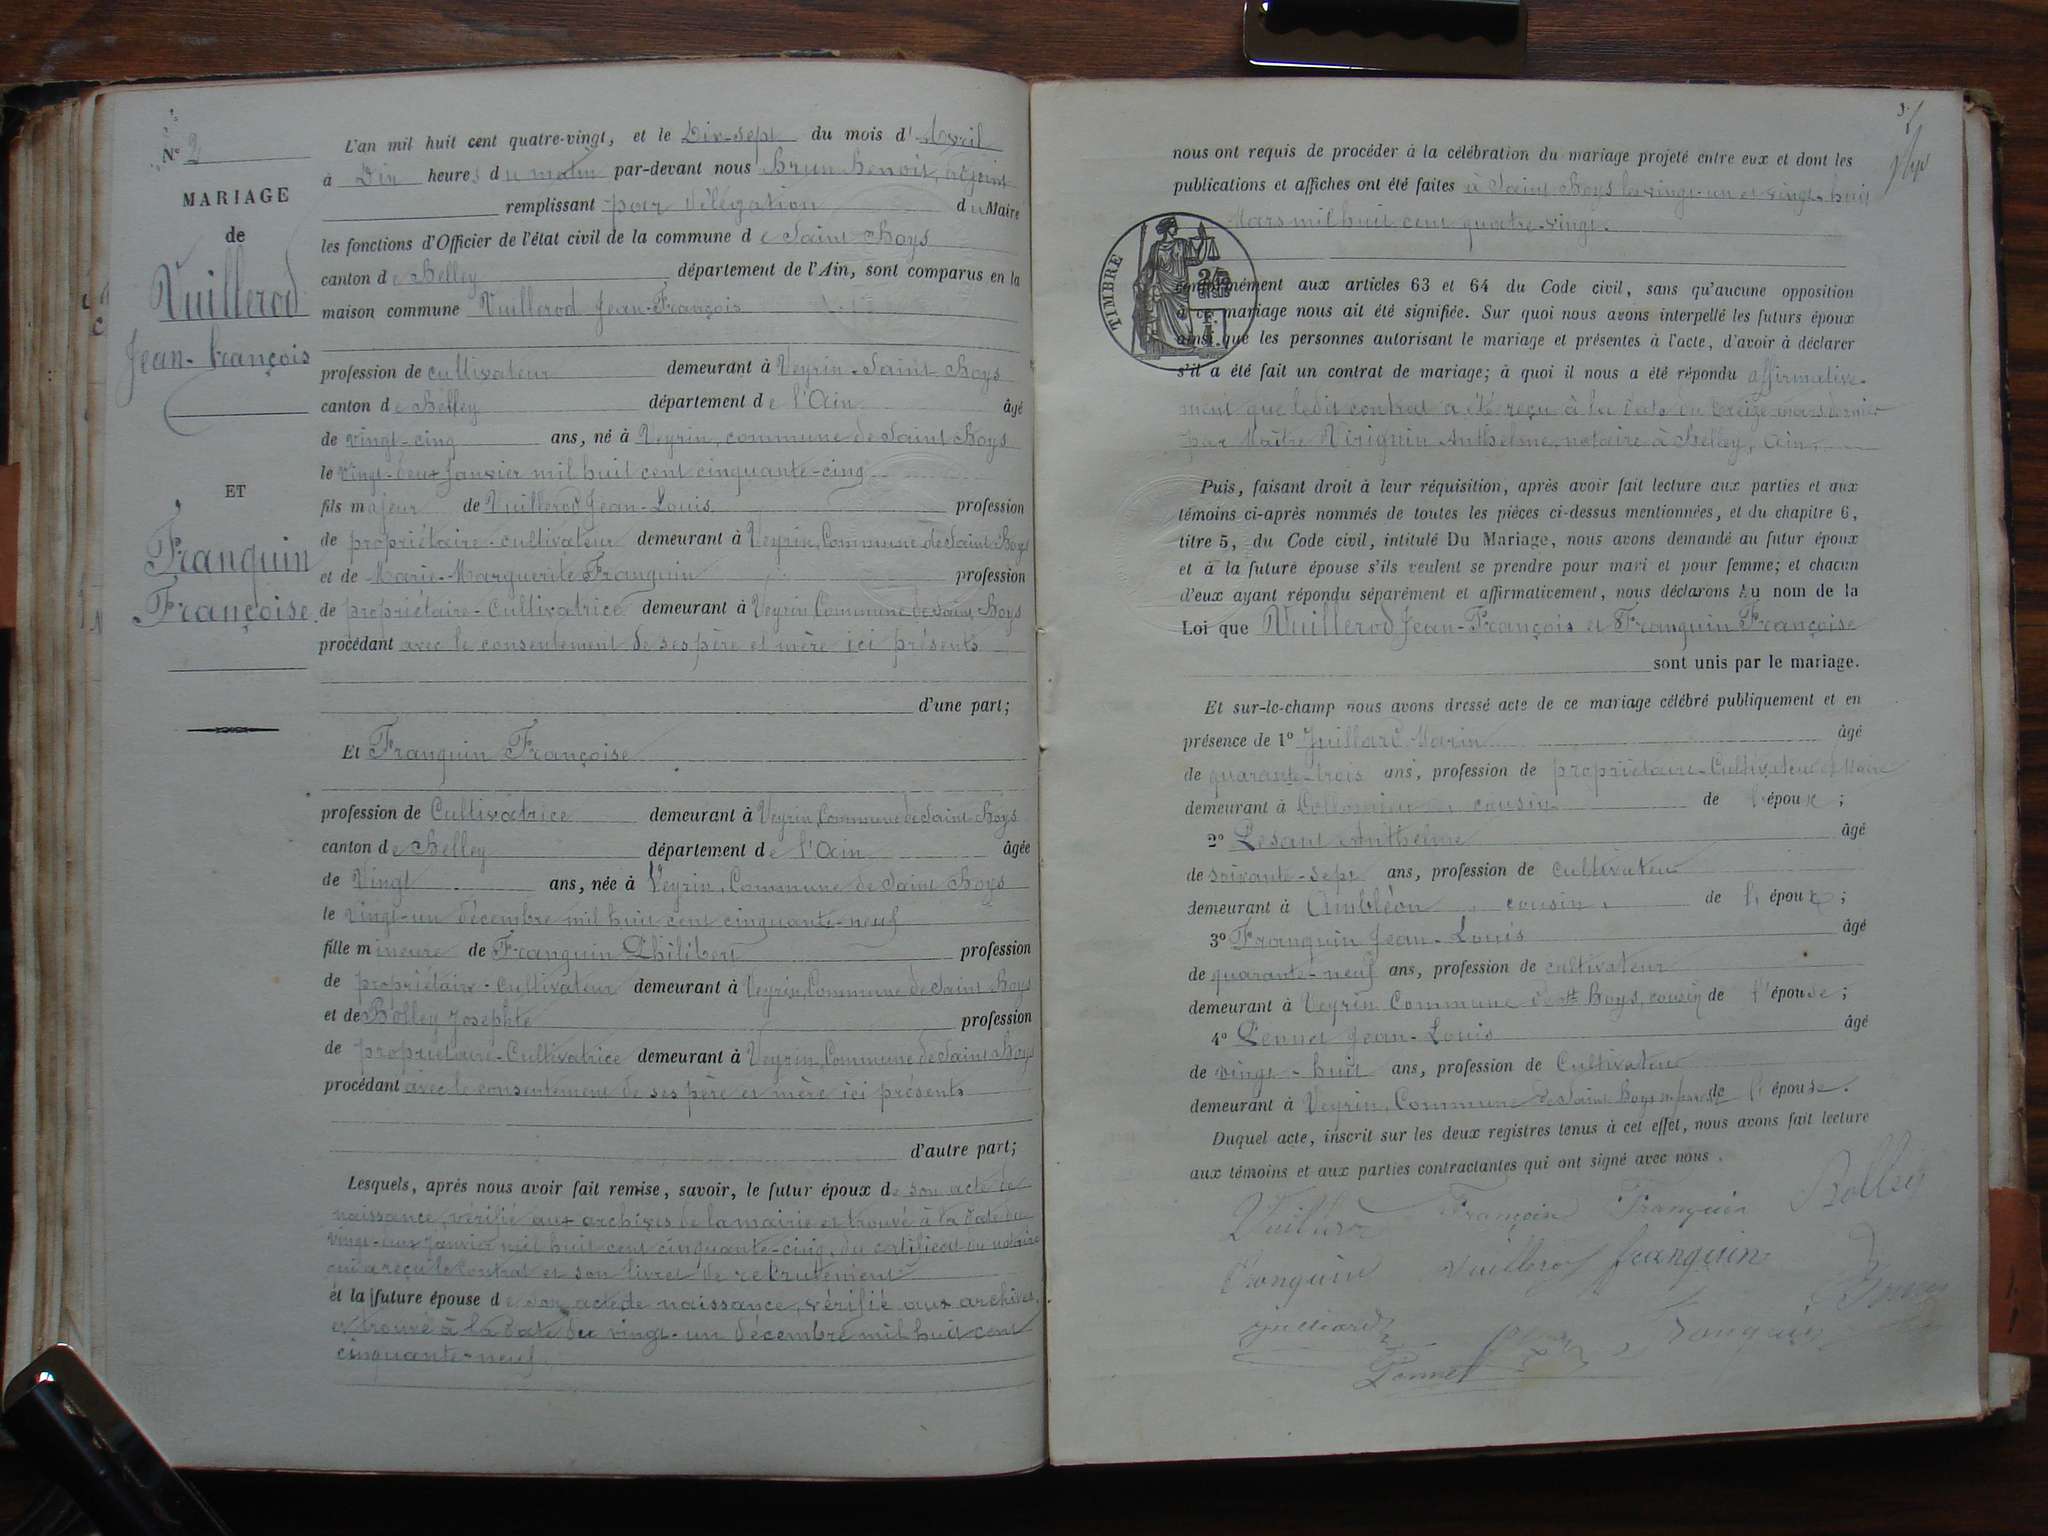 N° 2
MARIAGE
de
Vuillerod
Jean-François
ET
Franquin
Françoise.
L'an mil huit cent quatre-vingt, et le Dix-sept du mois d'Avril
à Dix heures du matin par-devant nous Brun Benoit, adjoint
remplissant par délégation du Maire
les fonctions d'Officier de l'état civil de la commune de Saint Boys
canton de Belley département de l'Ain, sont comparus en la
maison commune Vuillerod Jean-François
profession de cultivateur demeurant à Veyrin-Saint Boys
canton de Belley département de l'Ain âgé
de vingt-cinq ans, né à Veyrin, commune de Saint Boys
le vingt-deux Janvier mil huit cent cinquante-cinq
fils majeur de Vuillerod Jean-Louis profession
de propriétaire-cultivateur demeurant à Veyrin, Commune de Saint Boys
et de Marie-Marguerite Franquin profession
de propriétaire-Cultivatrice demeurant à Veyrin Commune de Saint Boys
procédant avec le consentement de ses père et mère ici présents
d'une part;
Et Franquin Françoise
profession de Cultivatrice demeurant à Veyrin, Commune de Saint Boys
canton de Belley département de l'Ain âgée
de Vingt ans, née à Veyrin, Commune de Saint Boys
le vingt-un décembre mil huit cent cinquante-neuf
fille mineure de Franquin Philibert profession
de propriétaire-Cultivateur demeurant à Veyrin, Commune de Saint Boys
et de Bolley Josephte profession
de propriétaire-Cultivatrice demeurant à Veyrin, Commune de Saint Boys
procédant avec le consentement de ses père et mère ici présents
d'autre part;
Lesquels, après nous avoir fait remise, savoir, le futur époux de son acte de
naissance, vérifié aux archives de la mairie et trouvé à la date du
vingt-deux Janvier mil huit cent cinquante-cinq, du certificat du notaire
qui a reçu le contrat et son livret de recrutement
et la future épouse de son acte de naissance, vérifié aux archives
et trouvé à la date du vingt-un décembre mil huit cent
cinquante-neuf
nous ont requis de procéder à la célébration du mariage projeté entre eux et dont les
publications et affiches ont été faites à Saint Boys les vingt-un et vingt-huit
Mars mil huit cent quatre-vingt.
TIMBRE
conformément aux articles 63 et 64 du Code civil, sans qu'aucune opposition
à ce mariage nous ait été signifiée. Sur quoi nous avons interpellé les futurs époux
ainsi que les personnes autorisant le mariage et présentes à l'acte, d'avoir à déclarer
s'il a été fait un contrat de mariage; à quoi il nous a été répondu affirmative-
ment que ledit contrat a été reçu à la date du treize mars dernier
par Maître Virignin Anthelme, notaire à Belley, Ain.
Puis, faisant droit à leur réquisition, après avoir fait lecture aux parties et aux
témoins ci-après nommés de toutes les pièces ci-dessus mentionnées, et du chapitre 6,
titre 5, du Code civil, intitulé Du Mariage, nous avons demandé au futur époux
et à la future épouse s'ils veulent se prendre pour mari et pour femme; et chacun
d'eux ayant répondu séparément et affirmativement, nous déclarons Au nom de la
Loi que Vuillerod Jean-François et Franquin Françoise
sont unis par le mariage.
Et sur-le-champ nous avons dressé acte de ce mariage célébré publiquement et en
présence de 1° Juillard Marin âgé
de quarante-trois ans, profession de propriétaire-Cultivateur et Maire
demeurant à cousin de l'époux;
2° Pesant Anthelme âgé
de soixante-sept ans, profession de Cultivateur
demeurant à Ambléon cousin de l'époux;
3° Franquin Jean-Louis âgé
de quarante-neuf ans, profession de cultivateur
demeurant à Veyrin Commune de St Boys, cousin de l'épouse;
4° Ponnet Jean-Louis âgé
de vingt-huit ans, profession de Cultivateur
demeurant à Veyrin, Commune de Saint Boys de l'épouse.
Duquel acte, inscrit sur les deux registres tenus à cet effet, nous avons fait lecture
aux témoins et aux parties contractantes qui ont signé avec nous.
Vuillerod François Franquin Bolley
Franquin Vuillerod franquin
Juillard Franquin
Ponnet